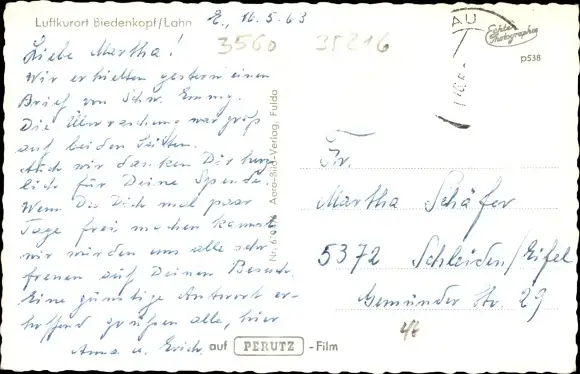 Luftkurort Biedenkopf/Lahn
E., 16.5.63
3560 35216
Liebe Martha!
Wir erhielten gestern einen
Brief von Schw. Emmy.
Die Überraschung war groß
auf beiden Seiten.
Auch wir danken Dir herz-
lich für Deine Spende.
Wenn Du Dich mal paar
Tage frei machen kannst
wir würden uns alle sehr
freuen auf Deinen Besuch.
Eine günstige Antwort er-
hoffend grüßen alle, hier
Anna u. Erich.
auf PERUTZ -Film
Aero-Bild-Verlag, Fulda
AU
Echte Photographie
p538
Fr.
Martha Schäfer
5372 Schleiden/Eifel
Gemünder Str. 29